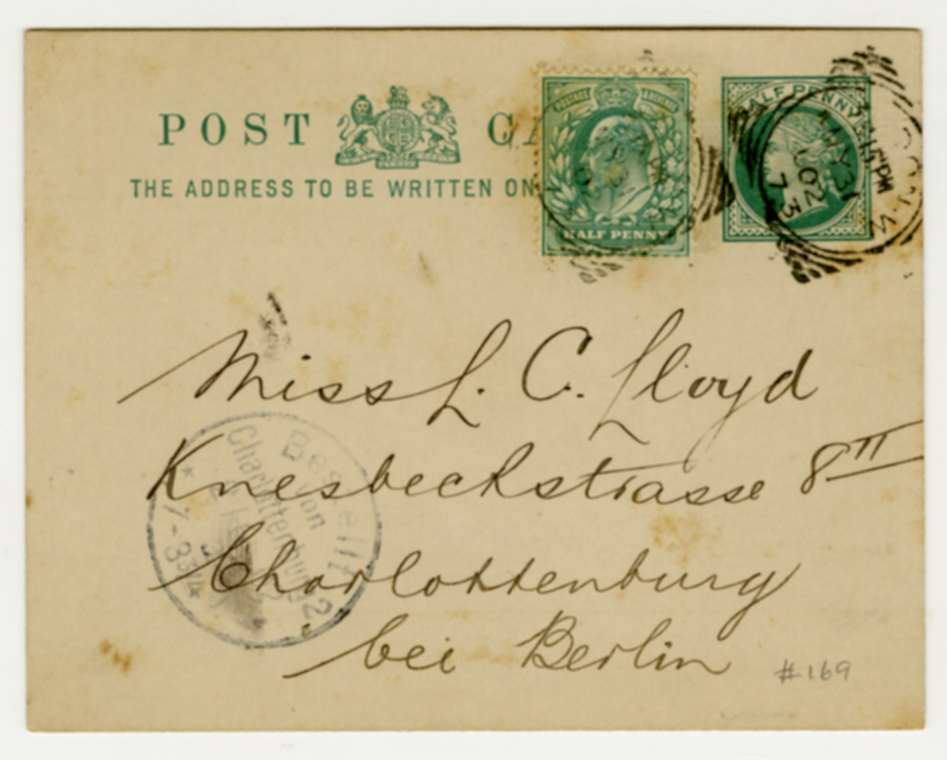 POST
THE ADDRESS TO BE WRITTEN ON
POSTAGE REVENUE
HALF PENNY
HALF PENNY
MY 31
02
73
Miss L. C. Lloyd
Knesbeckstrasse 8 II
Charlottenburg
bei Berlin
Bestellt
von
Charlottenburg 2
7-8 3/4
#169